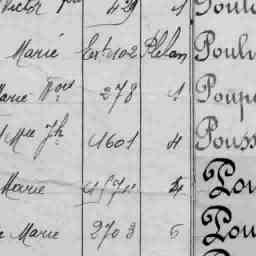 Victor 429 1 Poul
Marié Ext 102 Plelan Poulv
Marie 278 1 Poup
Mle Jh 4601 4 Pouss
Marie 4 Pou
Marie 2703 5 Pou